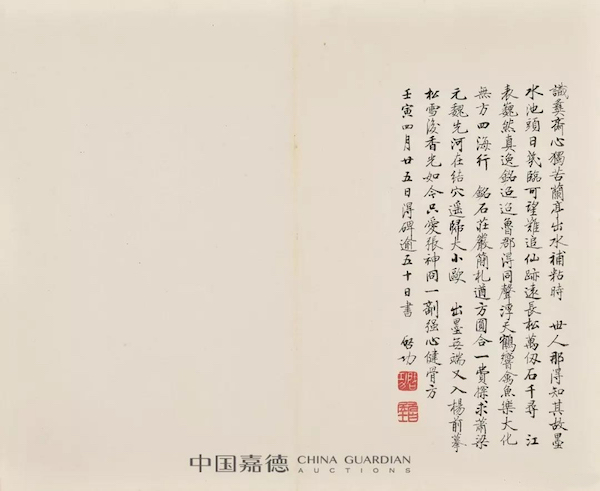 識彝齋心獨苦蘭亭出水補粘時 世人那得知其故墨
水池頭日幾臨可望難追仙跡遠長松萬仞石千尋 江
表巍然真逸銘迢迢魯郡得同聲浮天鶴響禽魚樂大化
無方四海行 銘石莊嚴簡札遒方圓合一費探求蕭梁
元魏先河在結穴遙歸大小歐 出墨無端又入楊前摹
松雪後香光如今只愛張神冏一劑强心健骨方
壬寅四月廿五日得碑逾五十日書 啓功
中国嘉德 CHINA GUARDIAN
AUCTIONS